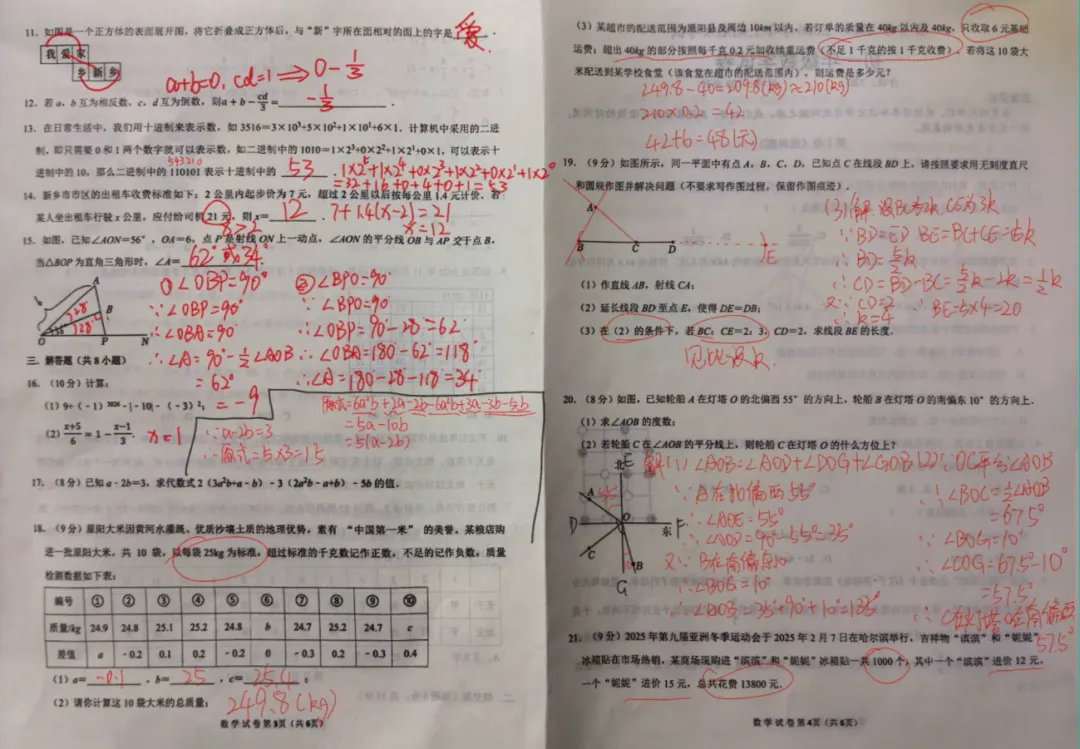 11. 如图是一个正方体的表面展开图，将它折叠成正方体后，与“新”字所在面相对的面上的字是 爱 .
我 爱 家
乡 新 乡
a+b=0, cd=1 ⟹ 0-1/3
12. 若 a、b 互为相反数，c、d 互为倒数，则 a+b-cd/3= -1/3 .
13. 在日常生活中，我们用十进制来表示数，如 3516=3×10³+5×10²+1×10¹+6×1. 计算机中采用的二进
制，即只需要 0 和 1 两个数字就可以表示数，如二进制中的 1010=1×2³+0×2²+1×2¹+0×1，可以表示十
543210
进制中的 10，那么二进制中的 110101 表示十进制中的 53 . 1×2⁵+1×2⁴+0×2³+1×2²+0×2¹+1×2⁰
=32+16+0+4+0+1=53
14. 新乡市市区的出租车收费标准如下：2 公里内起步价为 7 元，超过 2 公里以后按每公里 1.4 元计价，若
某人坐出租车行驶 x 公里，应付给司机 21 元，则 x= 12 . 7+1.4(x-2)=21
x=12
15. 如图，已知∠AON=56°，OA=6，点 P 是射线 ON 上一动点，∠AON 的平分线 OB 与 AP 交于点 B，
当△BOP 为直角三角形时，∠A= 62°或34°
A
B
O P N
28°
28°
① ∠OBP=90°
∵∠OBP=90°
∴∠OBA=90°
∴∠A=90°-½∠AOB
=62°
② ∠BPO=90°
∵∠BPO=90°
∴∠OBP=90°-28°=62°
∴∠OBA=180-62°=118°
∴∠A=180-28-118°=34°
三. 解答题（共 8 小题）
16.（10 分）计算：
（1）9÷(-1)²⁰²⁶-|-10|-(-3)²； =-9
（2）(x+5)/6=1-(x-1)/3. x=1
原式=6a²b+2a-2b-6a²b+3a-3b-5b
=5a-10b
=5(a-2b)
∵a-2b=3
∴原式=5×3=15
17.（8 分）已知 a-2b=3，求代数式 2（3a²b+a-b）-3（2a²b-a+b）-5b 的值.
18.（9 分）原阳大米因黄河水灌溉、优质沙壤土质的地理优势，素有“中国第一米”的美誉，某粮店购
进一批原阳大米，共 10 袋，以每袋 25kg 为标准，超过标准的千克数记作正数，不足的记作负数，质量
检测数据如下表：
编号 ① ② ③ ④ ⑤ ⑥ ⑦ ⑧ ⑨ ⑩
质量/kg 24.9 24.8 25.1 25.2 24.8 b 24.7 25.2 24.7 c
差值 a -0.2 0.1 0.2 -0.2 0 -0.3 0.2 -0.3 0.4
（1）a= -0.1 ，b= 25 ，c= 25.4 ；
（2）请你计算这 10 袋大米的总质量； 249.8(kg)
数学试卷第3页（共6页）
（3）某超市的配送范围为原阳县及周边 10km 以内，若订单的质量在 40kg 以内及 40kg，只收取 6 元基础
运费；超出 40kg 的部分按照每千克 0.2 元加收续重运费（不足 1 千克的按 1 千克收费）. 若将这 10 袋大
米配送到某学校食堂（该食堂在超市的配送范围内），则运费是多少元？
249.8-40=209.8(kg)≈210(kg)
210×0.2=42
42+6=48(元)
19.（9 分）如图所示，同一平面中有点 A、B、C、D，已知点 C 在线段 BD 上，请按照要求用无刻度直尺
和圆规作图并解决问题（不要求写作图过程，保留作图痕迹）.
A
B C D E
（1）作直线 AB，射线 CA；
（2）延长线段 BD 至点 E，使得 DE=DB；
（3）在（2）的条件下，若 BC：CE=2：3，CD=2，求线段 BE 的长度.
见比设k
(3)解：设BC为2k, CE为3k
∵BD=ED BE=BC+CE=5k
∴BD=5/2k
∴CD=BD-BC=5/2k-2k=½k
又∵CD=2
∴k=4
∴BE=5×4=20
20.（8 分）如图，已知轮船 A 在灯塔 O 的北偏西 55° 的方向上，轮船 B 在灯塔 O 的南偏东 10° 的方向上.
（1）求∠AOB 的度数；
（2）若轮船 C 在∠AOB 的平分线上，则轮船 C 在灯塔 O 的什么方位上？
北 E
A
D O 东 F
C B
G
解(1)∠AOB=∠AOD+∠DOG+∠GOB
∵A在北偏西55°
∴∠AOE=55°
∴∠AOD=90°-55°=35°
又∵B在南偏东10°
∴∠BOG=10°
∴∠AOB=35°+90°+10°=135°
(2)∵OC平分∠AOB
∴∠BOC=½∠AOB
=67.5°
∵∠BOG=10°
∴∠COG=67.5-10°
=57.5°
∴C在灯塔O在南偏西
57.5°
21.（9 分）2025 年第九届亚洲冬季运动会于 2025 年 2 月 7 日在哈尔滨举行，吉祥物“滨滨”和“妮妮”
冰箱贴在市场热销. 某商场现购进“滨滨”和“妮妮”冰箱贴一共 1000 个，其中一个“滨滨”进价 12 元，
一个“妮妮”进价 15 元，总共花费 13800 元.
数学试卷第4页（共6页）